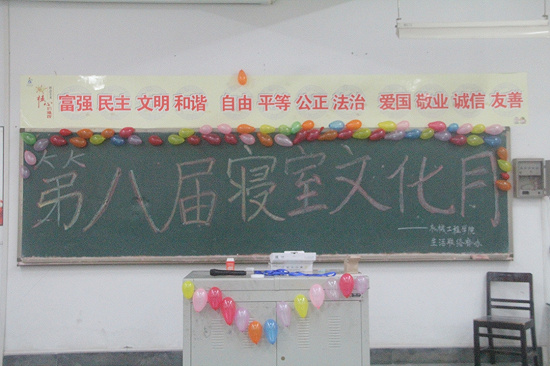 富强 民主 文明 和谐 自由 平等 公正 法治 爱国 敬业 诚信 友善
第八届寝室文化月